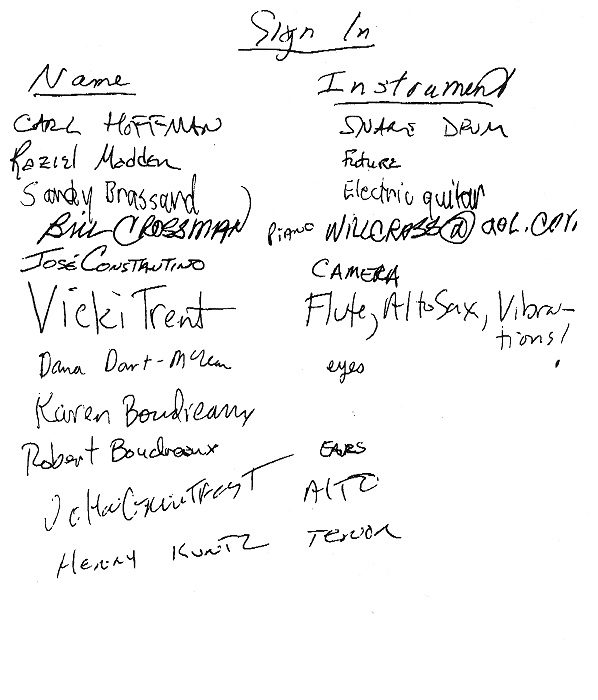 Sign In
Name Instrument
CARL HOFFMAN SNARE DRUM
Raziel Madden Future
Sandy Brassard Electric guitar
Bill CROSSMAN PIANO WILLCROSS@aol.com.
JOSÉ CONSTANTINO CAMERA
Vicki Trent Flute, Alto Sax, Vibra-
tions!
Dana Dart-McLean eyes
Karen Boudreaux
Robert Boudreaux EARS
ALTO
HENRY KUNTZ TENOR